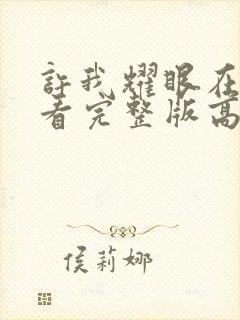 許我耀眼在
看完整版高
侯莉娜